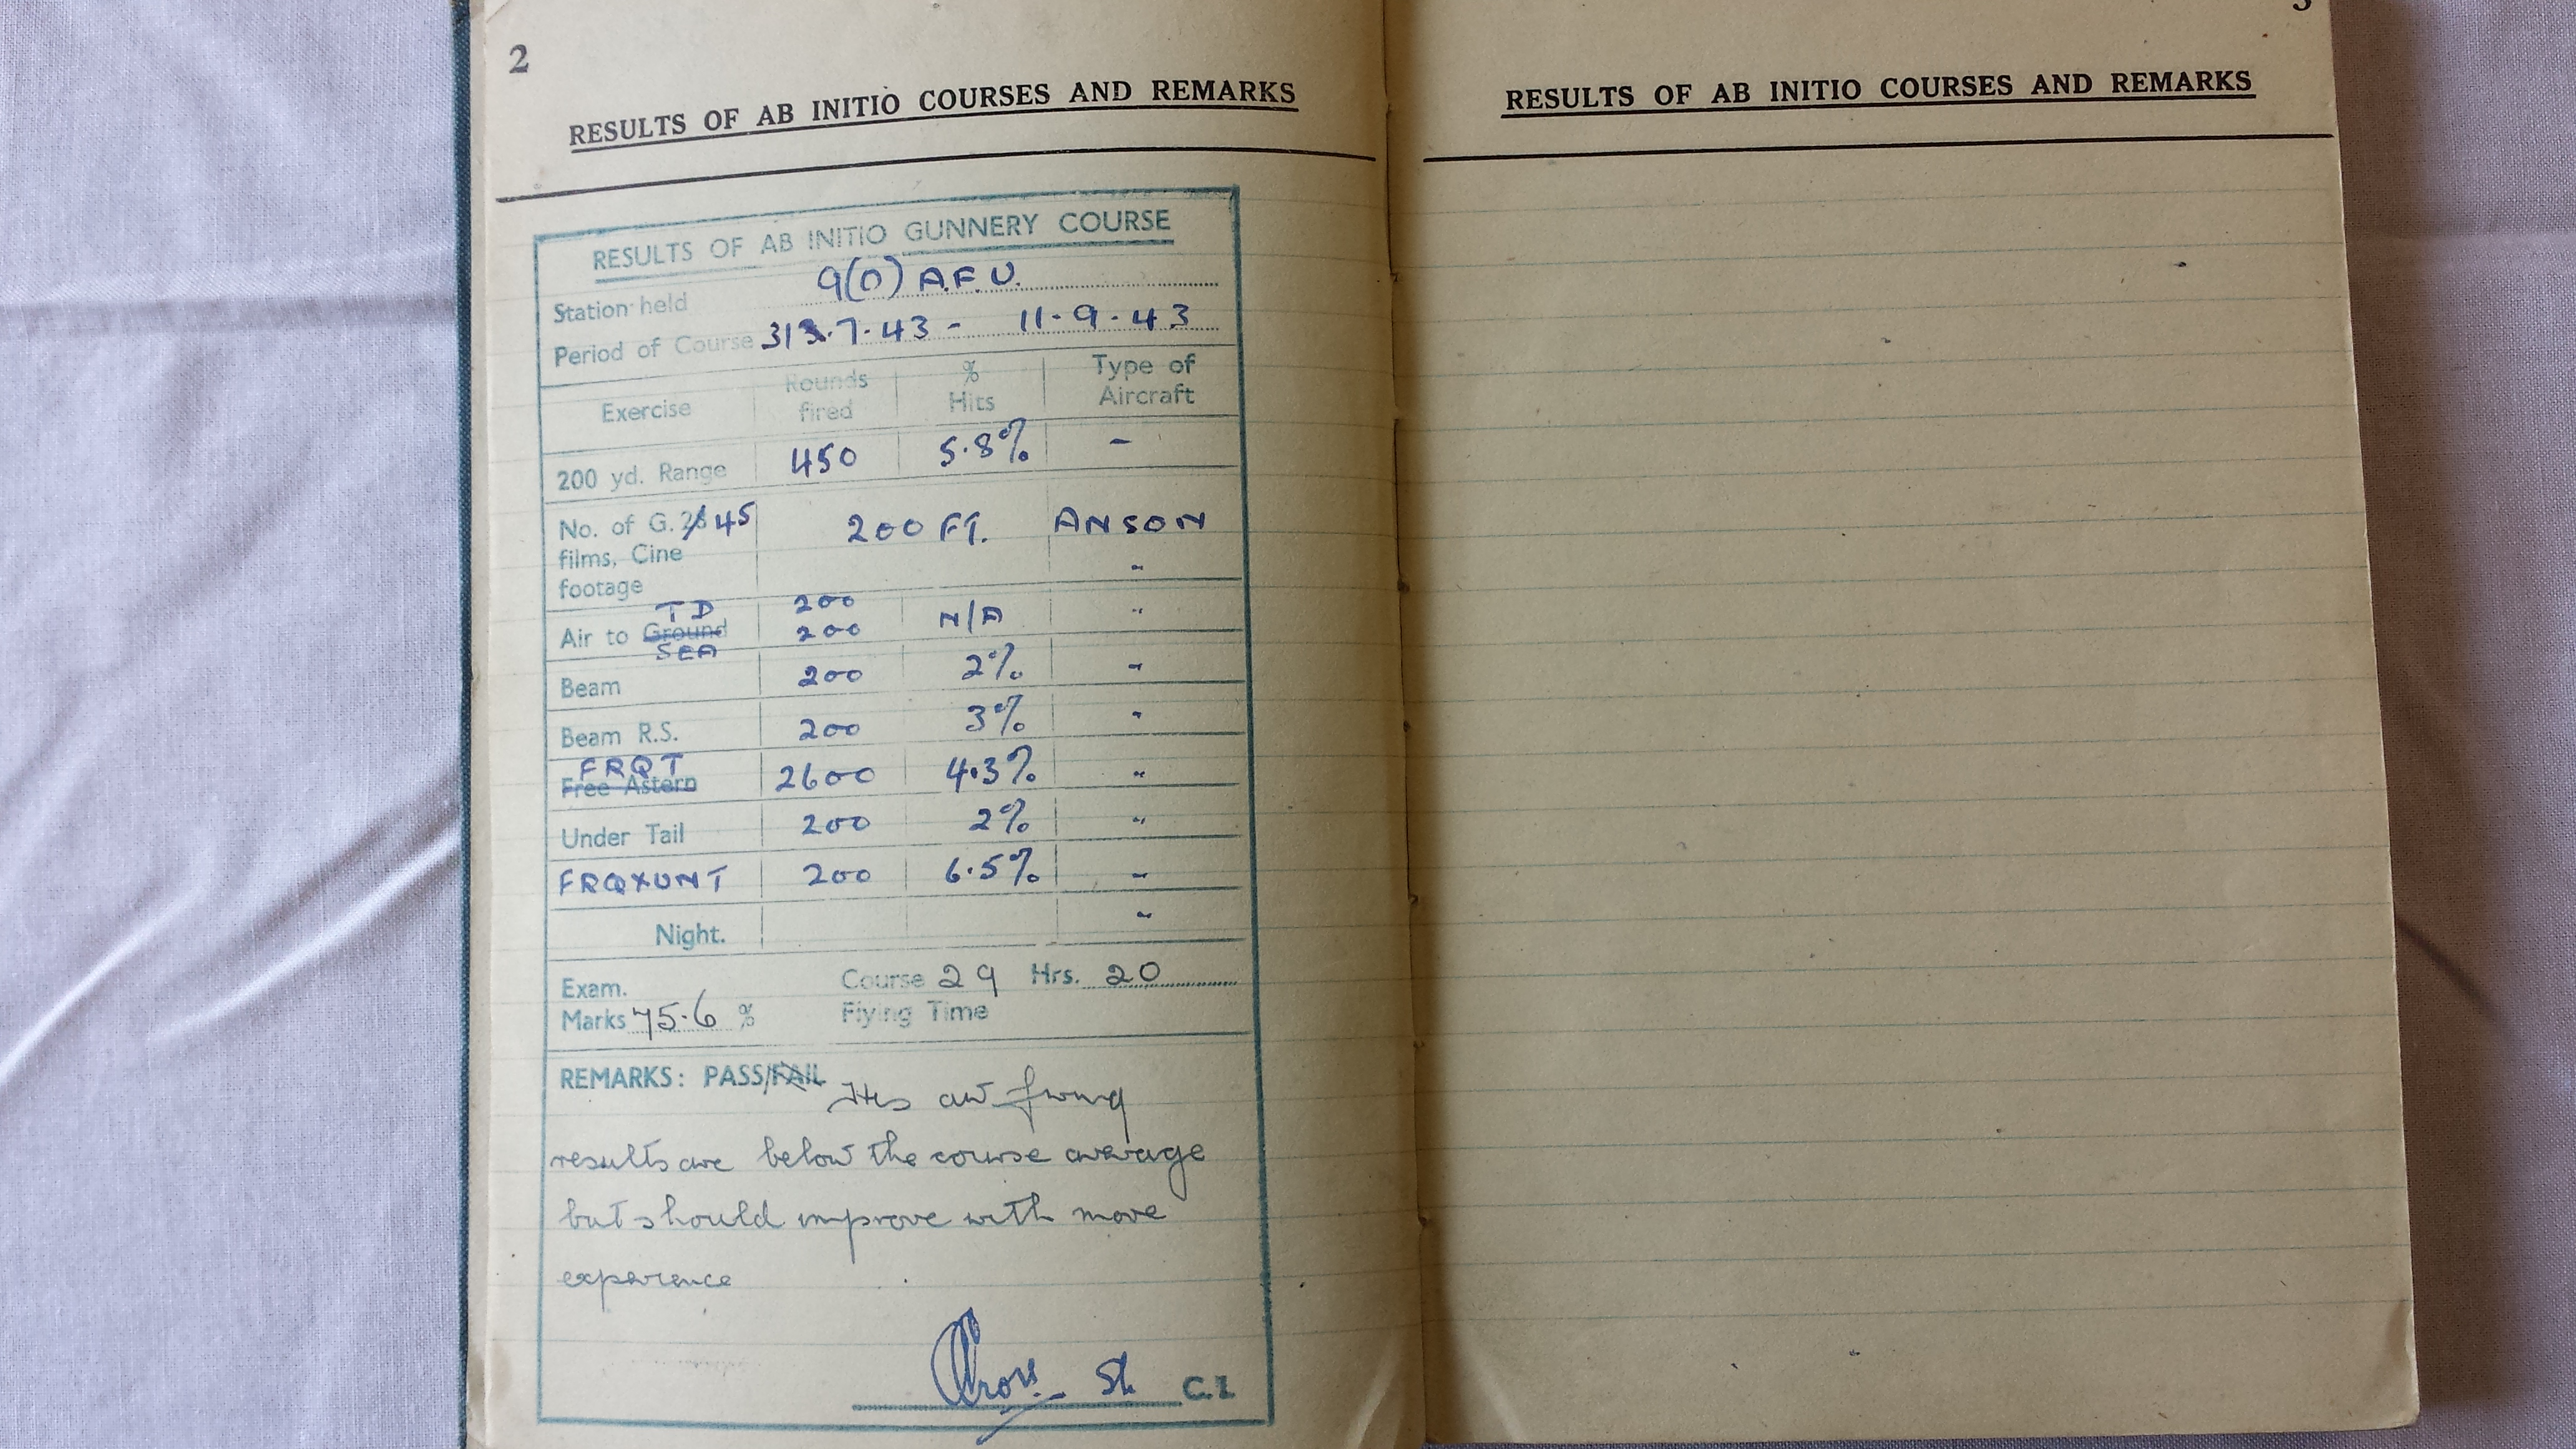 2
RESULTS OF AB INITIO COURSES AND REMARKS
RESULTS OF AB INITIO GUNNERY COURSE
Station held 9(O) A.F.U.
Period of Course 31.7.43 - 11.9.43
Exercise Rounds fired % Hits Type of Aircraft
200 yd. Range 450 5.8% -
No. of G. 45 200 FT. ANSON
films, Cine "
footage
TD 200
Air to Ground 200 N/A "
SEA
Beam 200 2% "
Beam R.S. 200 3% "
FRQT
Free Astern 2600 4.3% "
Under Tail 200 2% "
FRQXUNT 200 6.5% "
Night. "
Exam. Course 29 Hrs. 20
Marks 75.6 % Flying Time
REMARKS: PASS/FAIL His air firing
results are below the course average
but should improve with more
experience
C.I.
RESULTS OF AB INITIO COURSES AND REMARKS